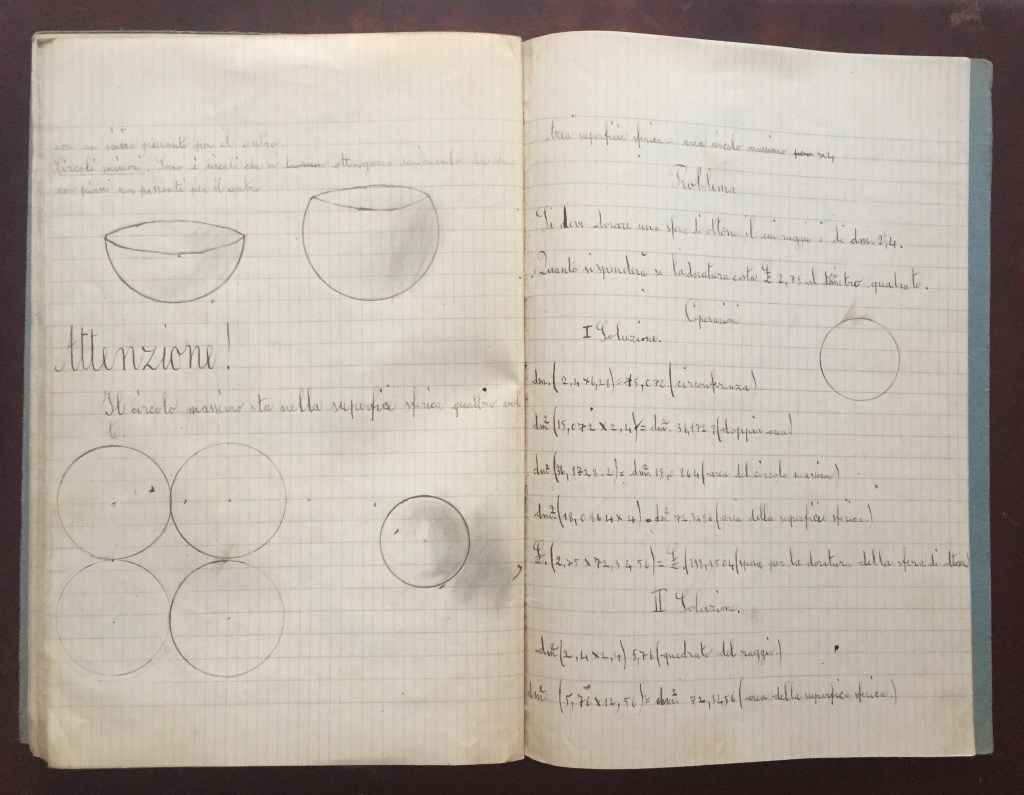 con un piano passante per il centro
Circoli minori. Sono i circoli che si ottengono
con piani non passanti per il centro
Attenzione!
Il circolo massimo sta nella superficie sferica quattro vol
te.
Area superficie sferica = area circolo massimo x4
Problema
Si deve dorare una sfera di ottone il cui raggio è di dm. 2,4.
Quanto si spenderà se la doratura costa £ 2,75 il quadrato.
Operazioni
I Soluzione.
dm. (2,4 x 6,28) = 15,072 (circonferenza)
dm² (15,072 x 2,4) = dm² 36,1728 (doppia area)
dm² (36,1728:2) = dm² 18,0864 (area del circolo massimo)
dm². (18,0864 x 4) = dm² 72,3456 (area della superficie sferica.)
£. (2,75 x 72,3456) = £. (spesa per la doratura della sfera di ottone)
II Soluzione.
dm² (2,4 x 2,4) 5,76 (quadrato del raggio.)
dm² (5,76 x 12,56) = dm² 72,3456 (area della superficie sferica.)